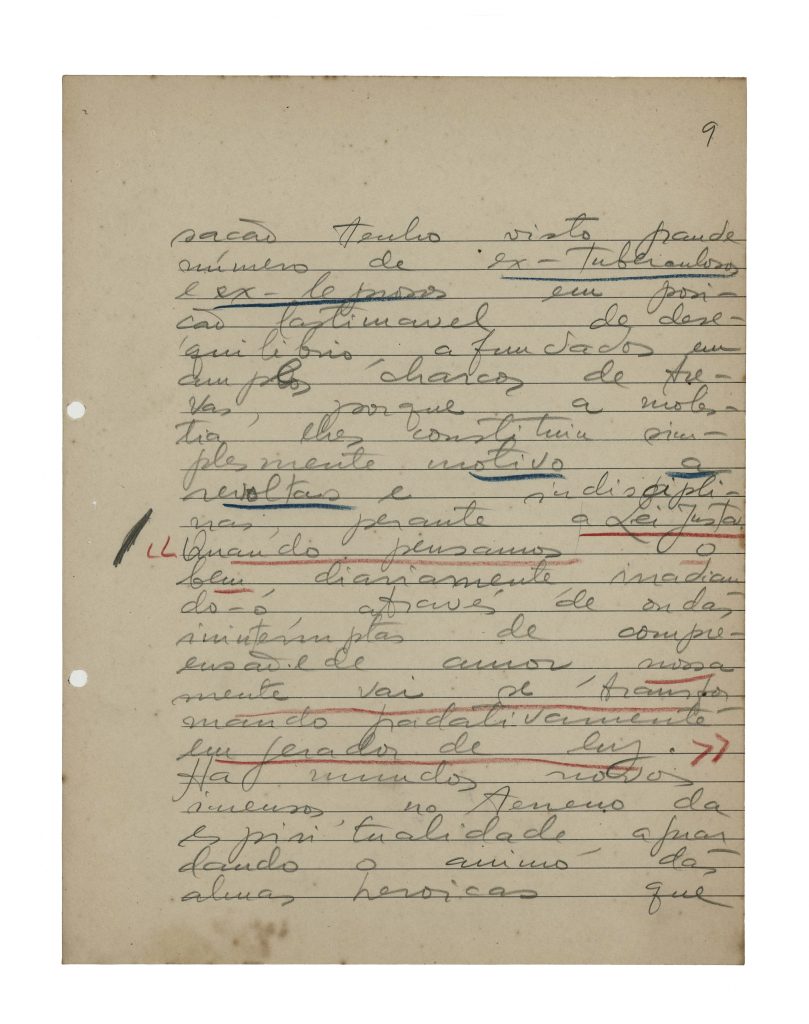 9
sacão tenho visto grande
número de ex-tuberculosos
e ex-leprosos em posi-
cão lastimavel de dese-
quilibrio afundados em
amplos charcos de tre-
vas, porque a moles-
tia lhes constituiu sim-
plesmente motivo a
revoltas e indiscipli-
nas, perante a Lei Justa.
"Quando pensamos o
bem diariamente irradian
do-o através de ondas
ininterruptas de compre-
ensão e de amor nossa
mente vai se transfor
mando gradativamente
em gerador de luz."
Ha mundos novos
imensos no terreno da
espiritualidade aguar
dando o animo das
almas heroicas que